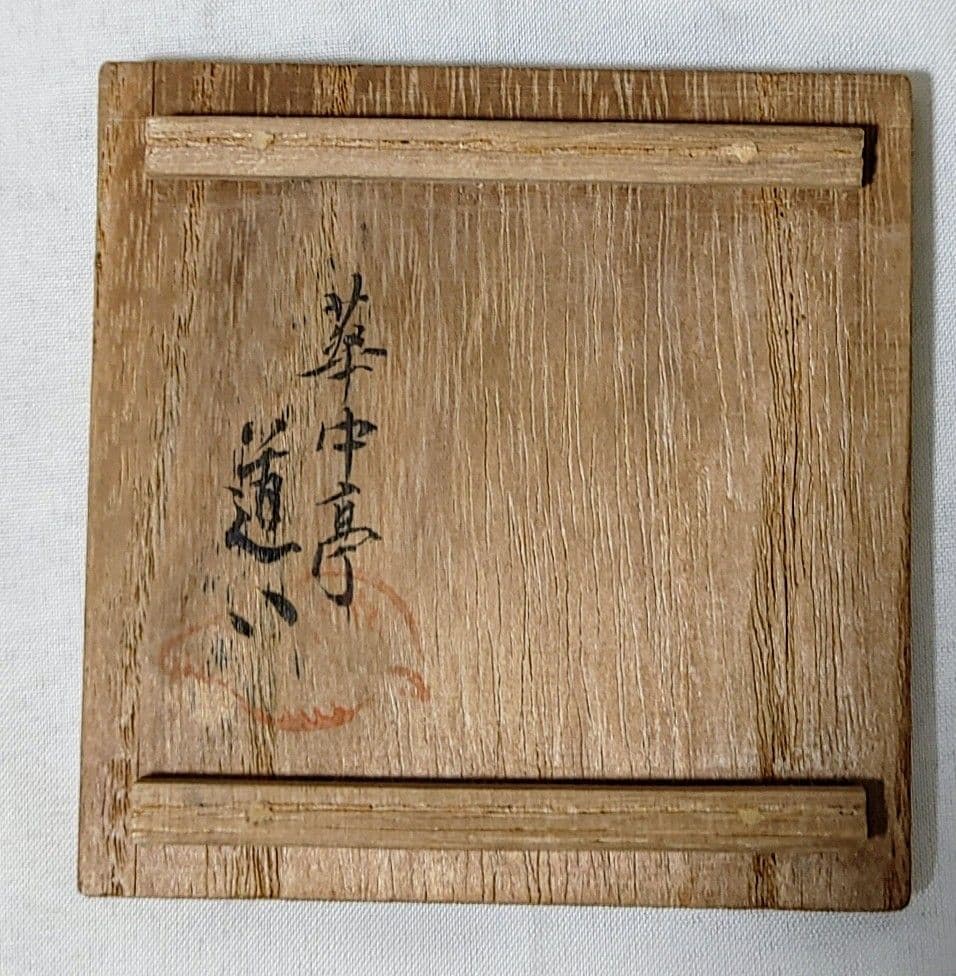 華中亭
道八